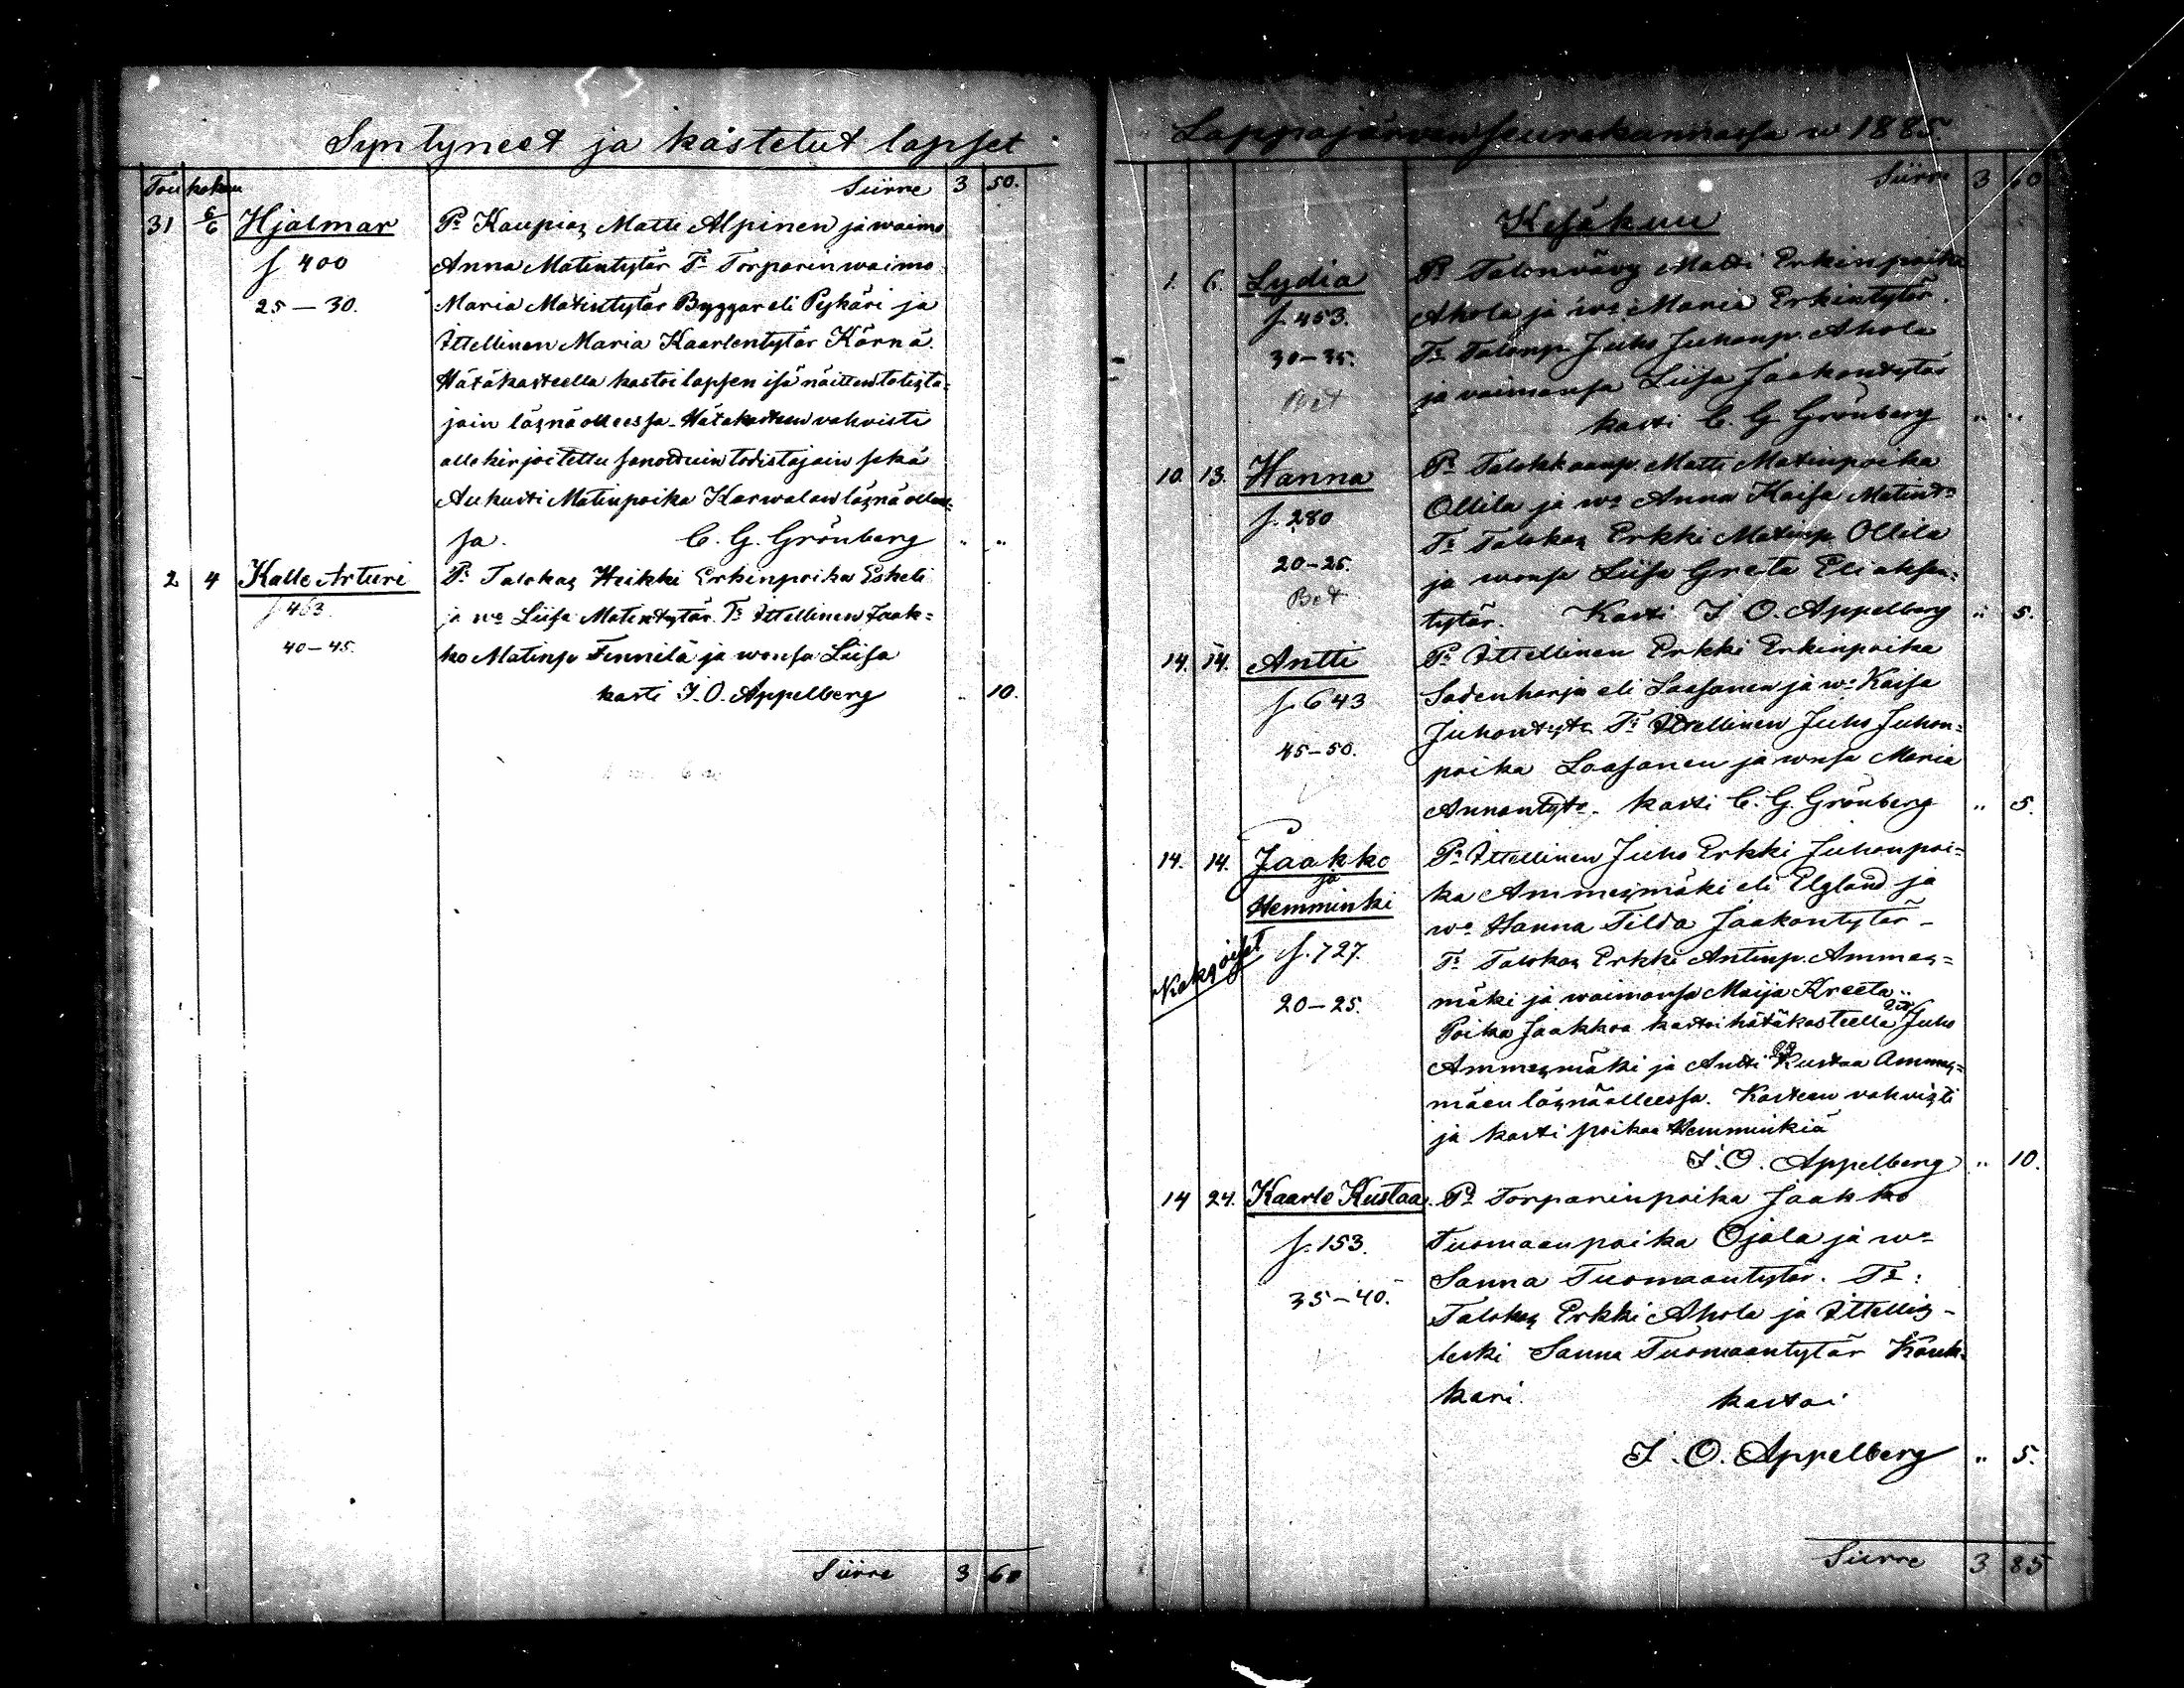 Syntyneet ja kastetut lapset
Toukokuu Siirre 3 50.
31 6/6 Hjalmar Ps Kaupias Matti Alpinen ja waimo
f 400 Anna Matintytär Ts Torparinwaimo
25–30. Maria Matintytär Byggar eli Pykäri ja
Ittellinen Maria Kaarlentytär Kärnä.
Hätäkasteella kastoi lapsen isä näitten todista=
jain läsnäolleessa. Hätäkasteen vahvisti
allekirjoitettu sanottuin todistajain sekä
Aukusti Matinpoika Karwalan läsnä ollees=
sa. C. G. Grönberg " "
2 4 Kalle Arturi Ps Talokas Heikki Erkinpoika Eskeli
f 463. ja wo Liisa Matintytär. Ts Ittellinen Jaak=
40–45. ko Matinp Finnilä ja wonsa Liisa
kasti J. O. Appelberg " 10.
Siirre 3 60
Lappajärven seurakunnassa w 1885
Siirre 3 60
Kesäkuu
1. 6. Lydia Ps Talonvävy Matti Erkinpoika
f 453. Ahola ja wo Maria Erkintytär.
30–35. Ts Talonp. Juho Juhonp. Ahola
ja vaimonsa Liisa Jaakontytär
kasti C. G. Grönberg " "
10. 13. Hanna Ps Talokkaanp. Matti Matinpoika
f. 280 Ollila ja wo Anna Kaisa Matint=
20–25. Ts Talokas Erkki Matinp. Ollila
Bet ja wonsa Liisa Greta Eliaksen=
tytär. Kasti J. O. Appelberg " 5.
14. 14. Antti Ps Ittellinen Erkki Erkinpoika
f 643 Sadenharju eli Laasanen ja wo Kaisa
45–50. Juhontytr Ts Ittellinen Juho Juhon=
poika Laasanen ja wnsa Maria
Annantytr. kasti C. G. Grönberg " 5.
14. 14. Jaakko Ps Ittellinen Juho Erkki Juhonpoi=
ja
Hemminki ka Ammesmäki eli Elgland ja
wo Hanna Tilda Jaakontytär –
Kaksoiset f. 727. Ts Talokas Erkki Antinp. Ammes=
20–25. mäki ja waimonsa Maija Kreeta..
Poika Jaakkoa kastoi hätäkasteella Juho
Ammesmäki ja Antti Kustaa Ammes=
mäen läsnäolleessa. Kasteen vahvisti
ja kasti poikaa Hemminkiä
J. O. Appelberg " 10.
14 24. Kaarle Kustaa. Ps Torparinpoika Jaakko
f. 153. Tuomaanpoika Ojala ja wo
Sanna Tuomaantytär. Ts:
35–40. Talokas Erkki Ahola ja Ittellis-
leski Sanna Tuomaantytär Könk=
kari. kastoi
J. O. Appelberg " 5.
Siirre 3 85